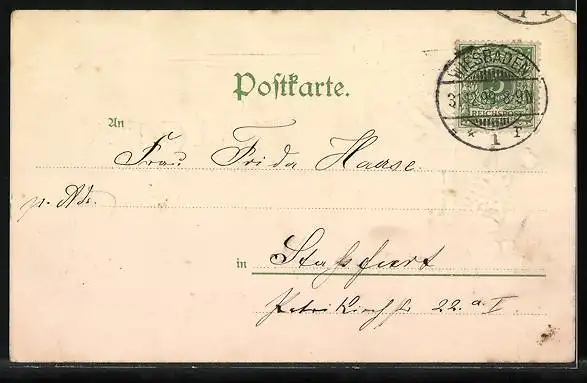 WIESBADEN
8-9N
* 1 r
REICHSPOST
Postkarte.
An
Frau Frida Haase
p. Adr.
in Staßfurt
Petrikirchstr 22. a. I